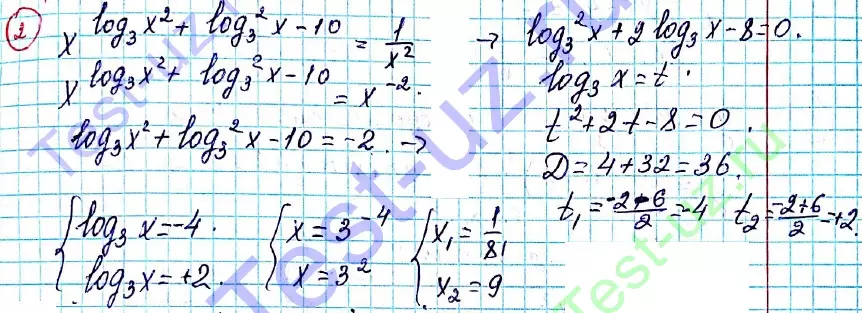 2
x^(log₃x² + log₃²x - 10) = 1/x² →
x^(log₃x² + log₃²x - 10) = x⁻².
log₃x² + log₃²x - 10 = -2. →
log₃²x + 2 log₃x - 8 = 0.
log₃x = t.
t² + 2t - 8 = 0.
D = 4 + 32 = 36.
t₁ = (-2-6)/2 = -4 t₂ = (-2+6)/2 = +2.
{ log₃x = -4. { x = 3⁻⁴ { x₁ = 1/81
log₃x = +2. x = 3² x₂ = 9
Test-uz.ru